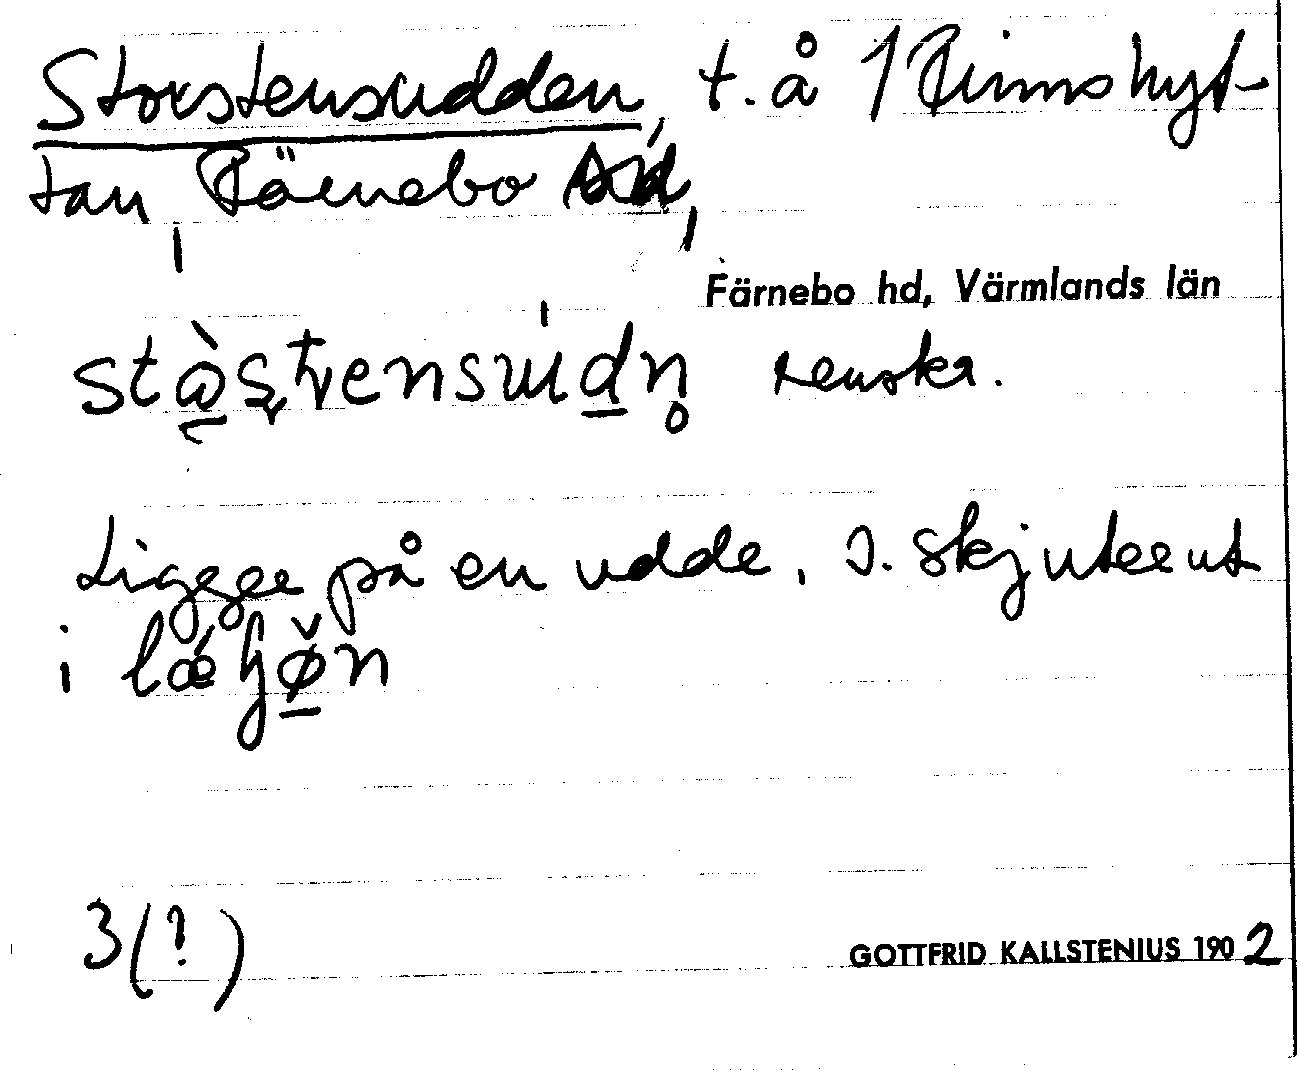 Storstensudden, t. å 1 Finnshyt-
tan, Färnebo sn,
Färnebo hd, Värmlands län
renskr.
Ligger på en udde, s. skjuter ut
i
3(?)
GOTTFRID KALLSTENIUS 1902